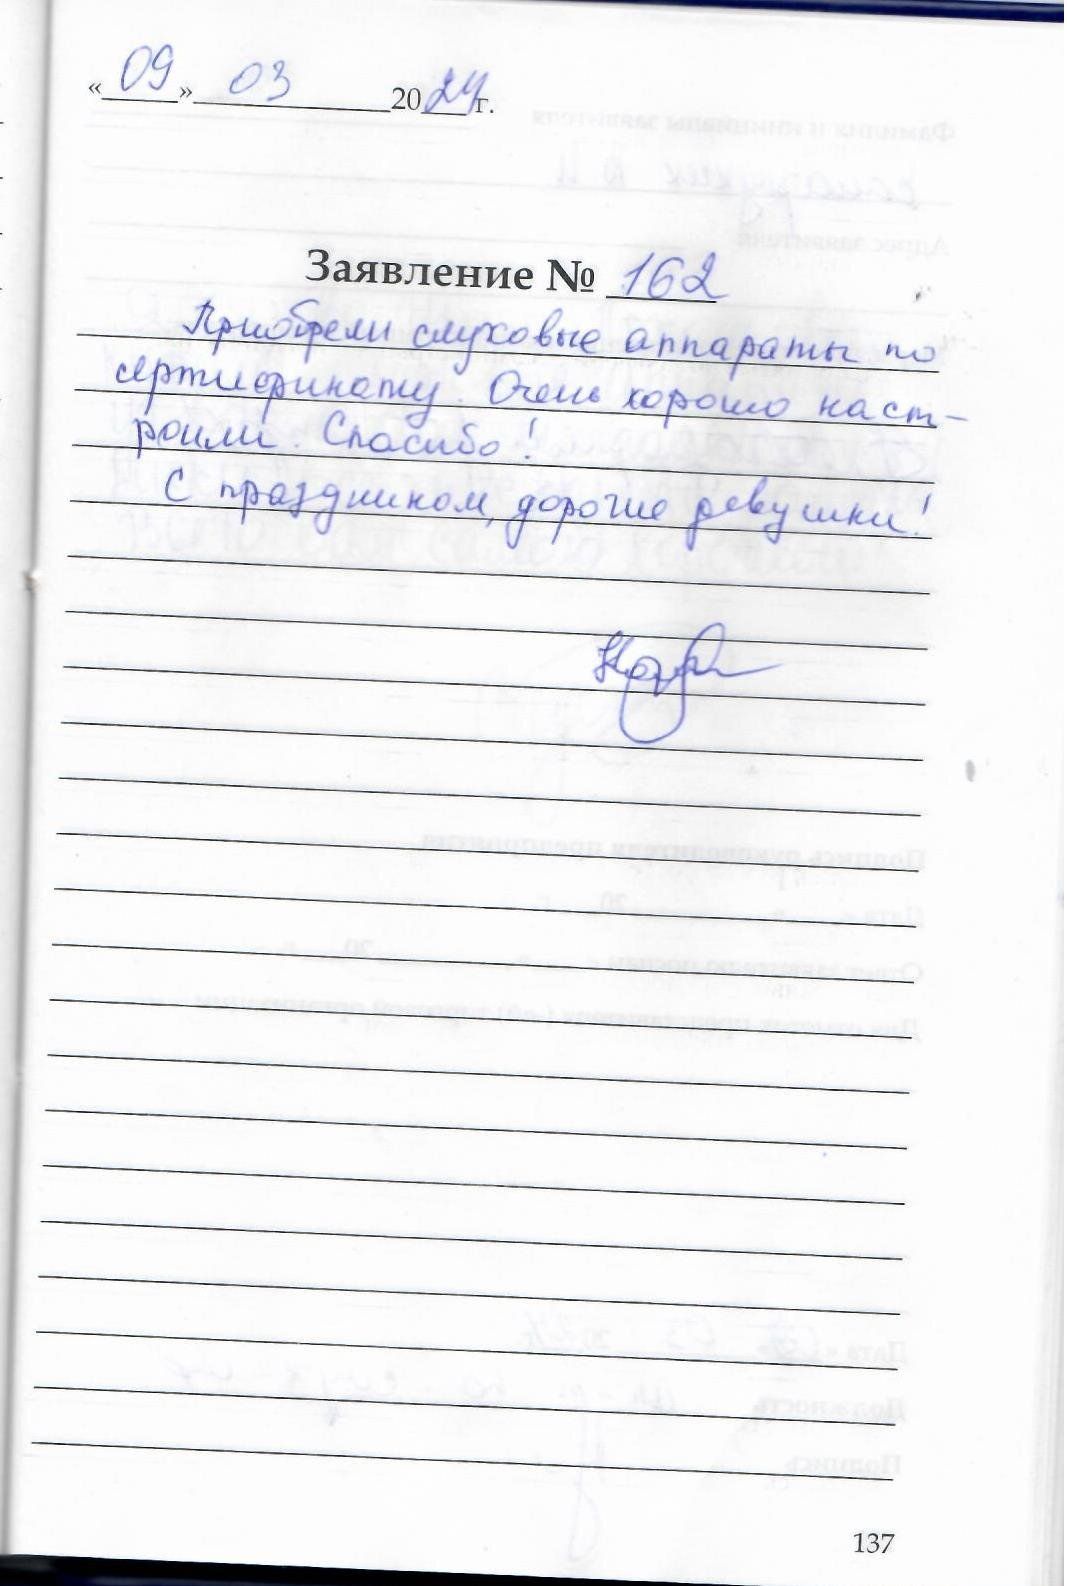 «09» 03 2024 г.
Заявление № 162
Приобрели слуховые аппараты по
сертификату. Очень хорошо наст-
роили. Спасибо!
С праздником, дорогие девушки!
137